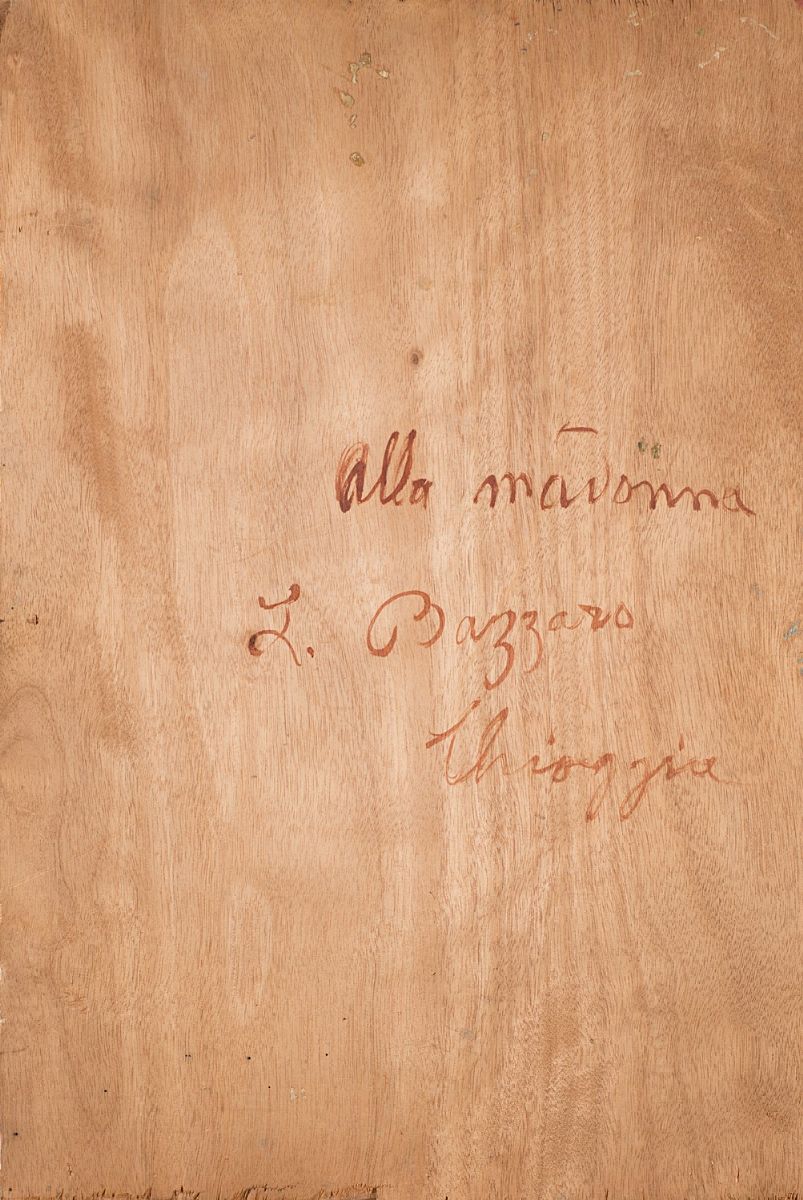 Alla madonna
L. Bazzaro
Chioggia